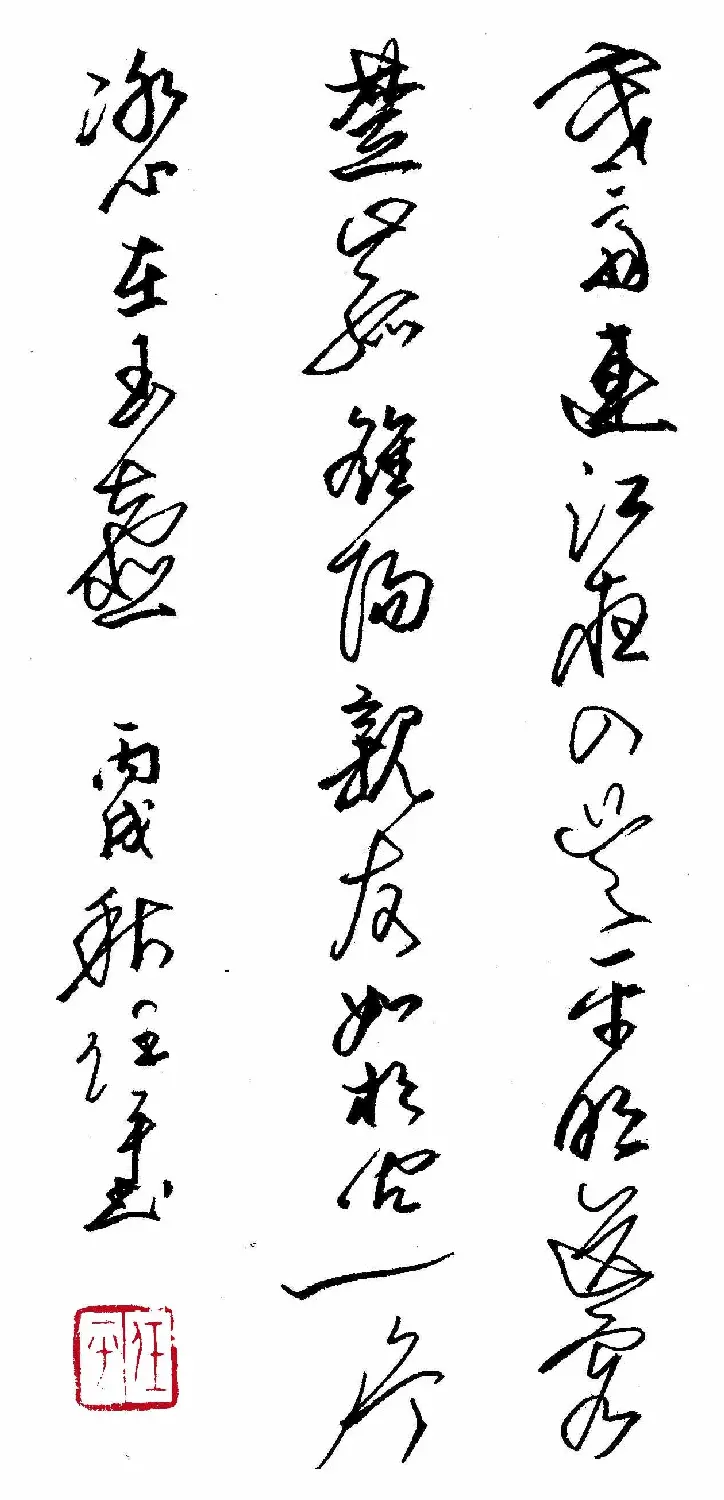 寒雨連江夜入吳平明送客
楚山孤雒陽親友如相问一片
冰心在玉壺 丙戌秋任平書
任平